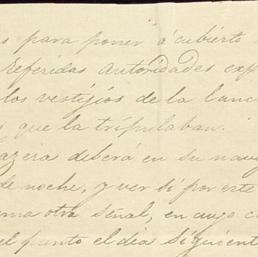 para poner á cubierto
referidas autoridades exp
los vestijios de la lanc
que la tripulaban.
azera deberá en su nave
de noche, y ver si por este
ma otra señal, en cuyo c
el punto el dia siguient